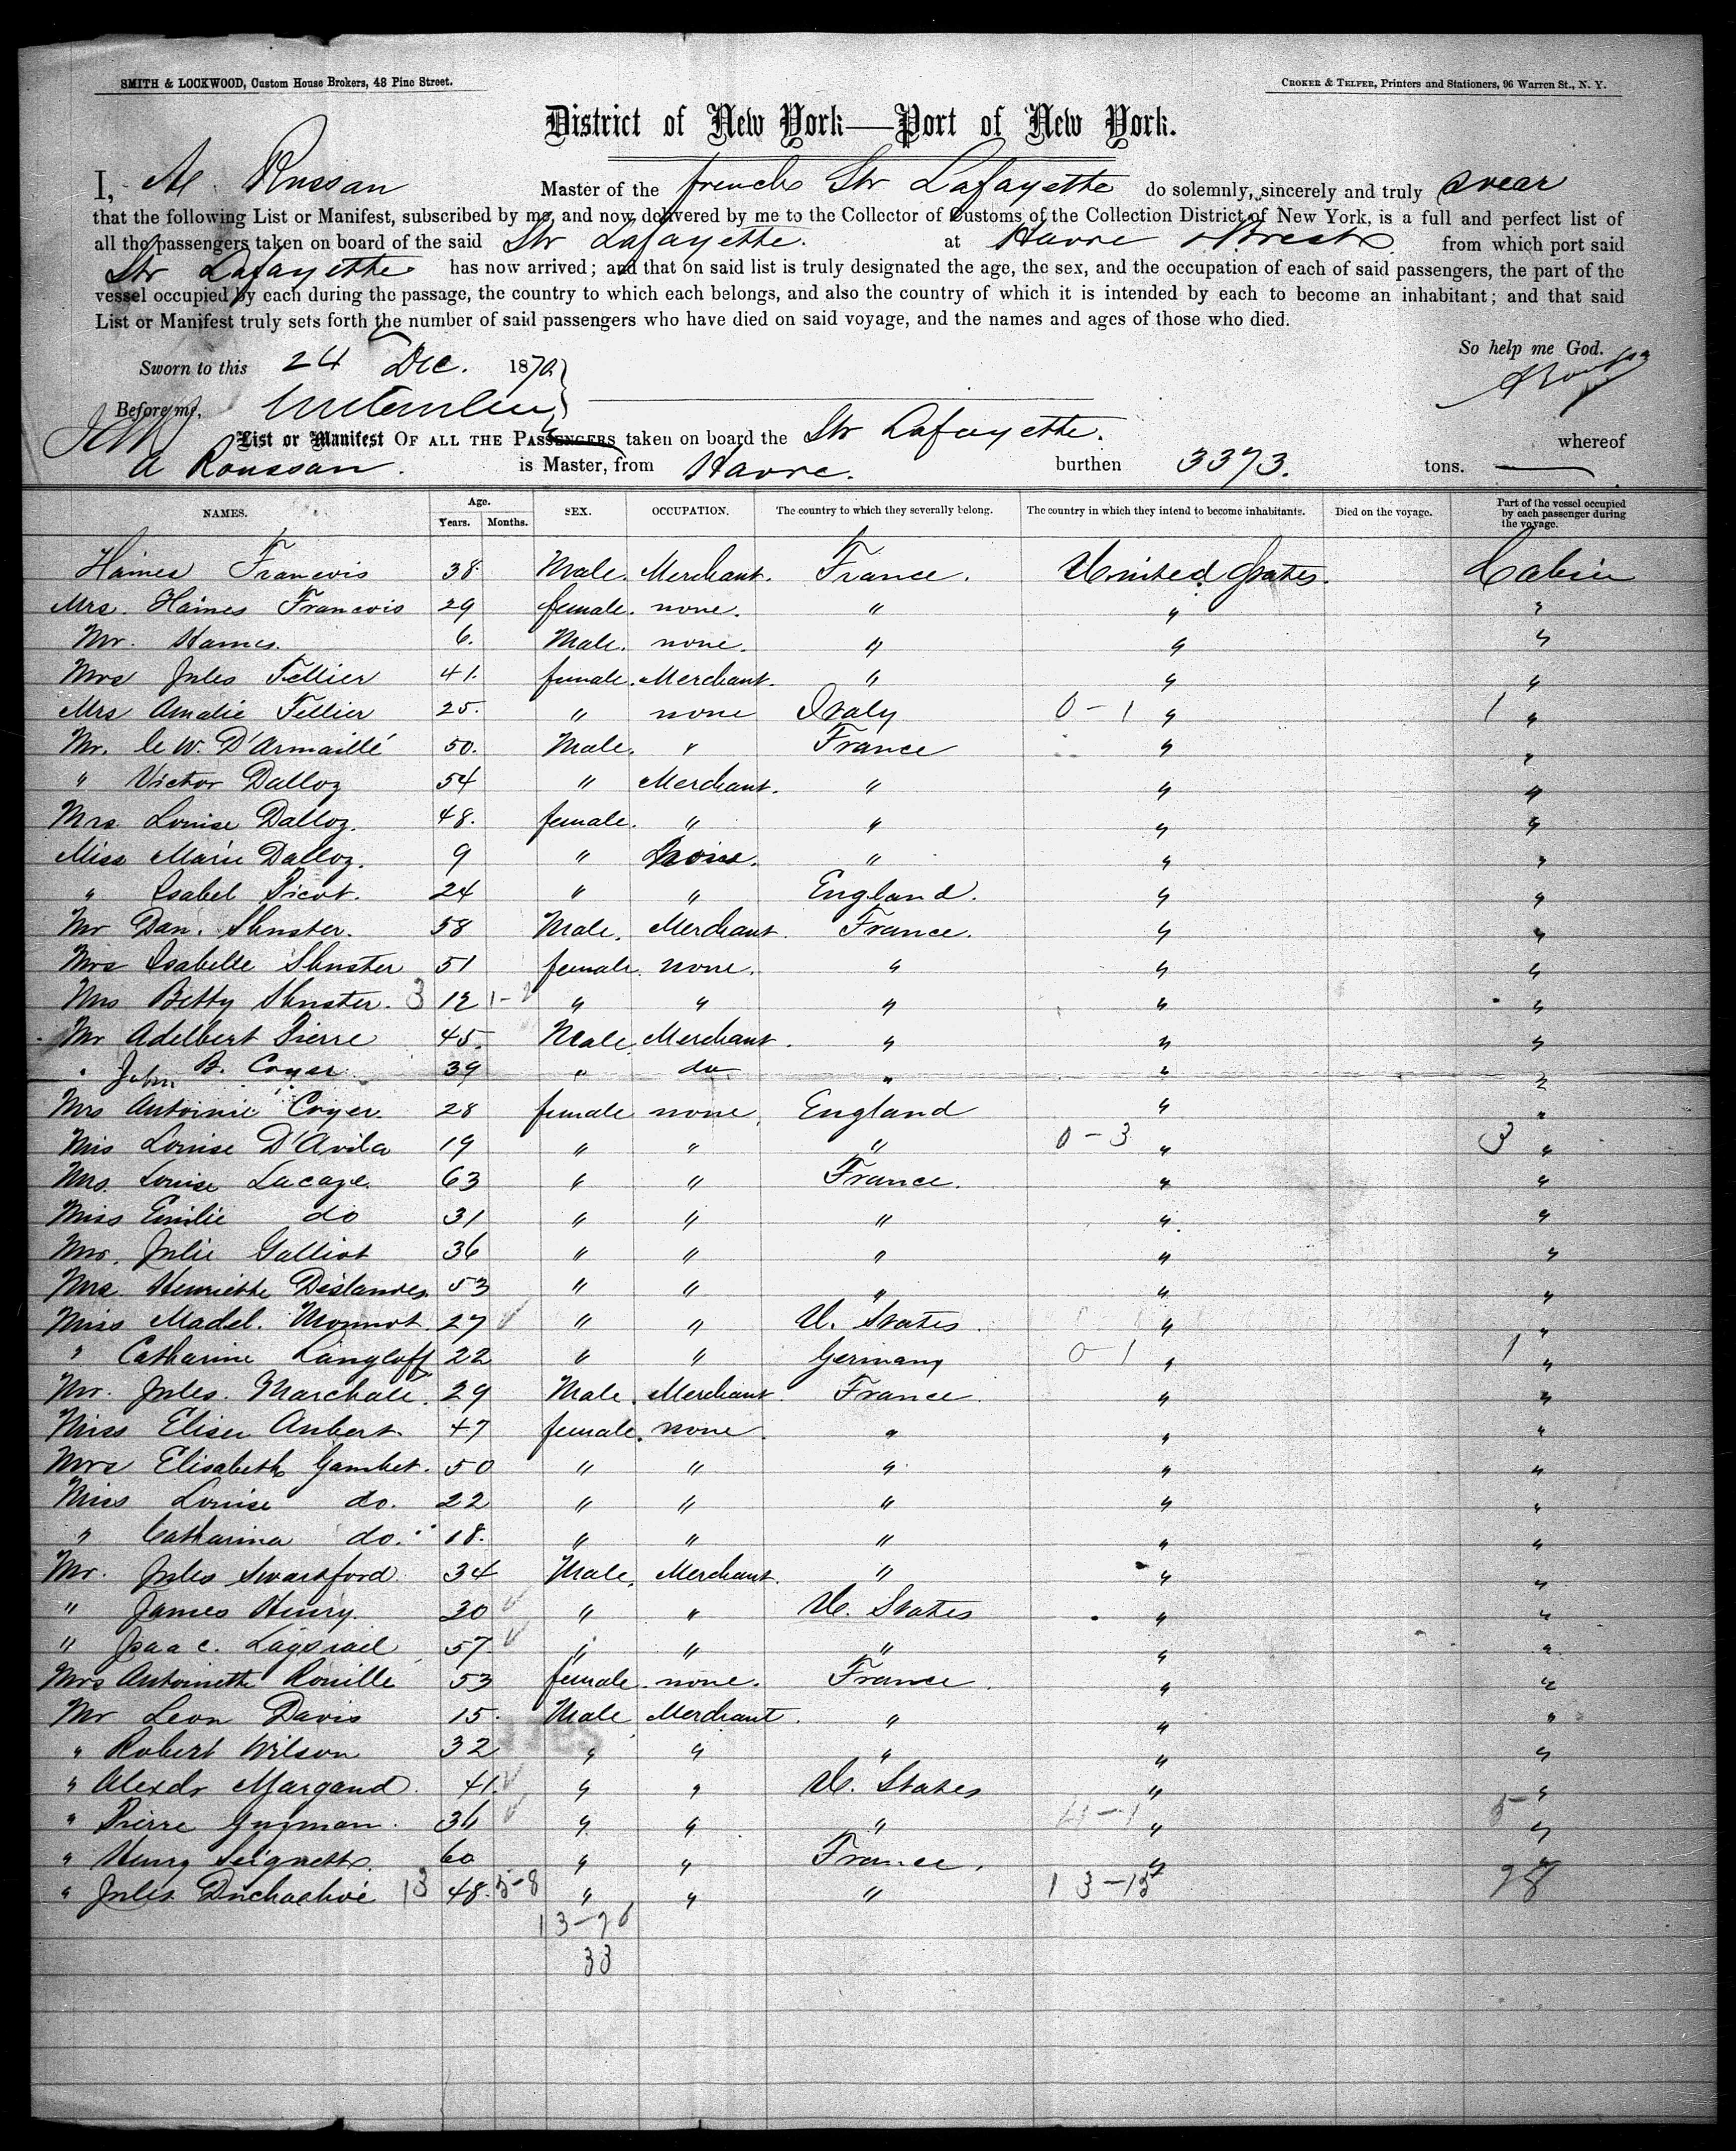 SMITH & LOCKWOOD, Custom House Brokers, 48 Pine Street.
CROKER & TELFER, Printers and Stationers, 96 Warren St., N. Y.
District of New York—Port of New York.
I, A. Roussan Master of the french Str Lafayette do solemnly, sincerely and truly swear
that the following List or Manifest, subscribed by me, and now delivered by me to the Collector of Customs of the Collection District of New York, is a full and perfect list of
all the passengers taken on board of the said Str Lafayette. at Havre & Brest from which port said
Str Lafayette has now arrived; and that on said list is truly designated the age, the sex, and the occupation of each of said passengers, the part of the
vessel occupied by each during the passage, the country to which each belongs, and also the country of which it is intended by each to become an inhabitant; and that said
List or Manifest truly sets forth the number of said passengers who have died on said voyage, and the names and ages of those who died.
So help me God.
Sworn to this 24 Dec. 1870
Before me,
List or Manifest OF ALL THE PASSENGERS taken on board the Str Lafayette. whereof
A Roussan. is Master, from Havre. burthen 3373. tons.
NAMES. Age. Years. Months. SEX. OCCUPATION. The country to which they severally belong. The country in which they intend to become inhabitants. Died on the voyage. Part of the vessel occupied by each passenger during the voyage.
Haines Francois 38 Male. Merchant. France. United States. Cabin
Mrs. Haines Francois 29 female. none. " " "
Mr. Hames. 6. Male. none. " " "
Mrs Jules Tellier 41. female. Merchant. " " "
Mrs Amalie Tellier 25. " none Italy 0-1 " 1 "
Mr. le W. D'Armaillé 50. Male. " France " "
" Victor Dalloz 54 " Merchant. " " "
Mrs. Louise Dalloz. 48. female. " " " "
Miss Marie Dalloz. 9 " none. " " "
" Isabel Picot. 24 " " England. " "
Mr Dan. Shuster. 58 Male. Merchant. France. " "
Mrs Isabelle Shuster 51 female. none. " " "
Mrs Betty Shuster. 3 12 1-2 " " " " "
Mr Adelbert Pierre 45. Male. Merchant. " " "
" John B. Coyer 39 " do " " "
Mrs Antoinie Coyer. 28 female none. England " "
Miss Louise D'Avila 19 " " " 0-3 " 3 "
Mrs. Louise Lacaze. 63 " " France. " "
Miss Emilie do 31 " " " " "
Mrs. Julie Galliot 36 " " " " "
Mrs. Henriette Deslandes. 53 " " " " "
Miss Madel. Monnot. 27 " " U. States. " "
" Catharine Langloff 22 " " Germany 0-1 " 1 "
Mr. Jules. Marchale. 29 Male. Merchant. France. " "
Miss Elise Aubert. 47 female. none. " " "
Mrs Elisabeth Gambet. 50 " " " " "
Miss Louise do. 22 " " " " "
" Catharina do. 18. " " " " "
Mr. Jules Swartford. 34 Male. Merchant. " " "
" James Henry. 30 " " U. States " "
" Isaac. 57. " " " " "
Mrs Antoinette Rouille 53 female. none. France. " "
Mr Leon Davis 15. Male Merchant. " " "
" Robert Wilson 32 " " " " "
" Alexdr Margand. 41. " " U. States " "
" Pierre Guzman. 36 " " " 4-1 " 5 "
" Henry Seignette. 60 " " France. " "
" Jules 13 48. 5-8 " " " 13-13 28
13-20
33